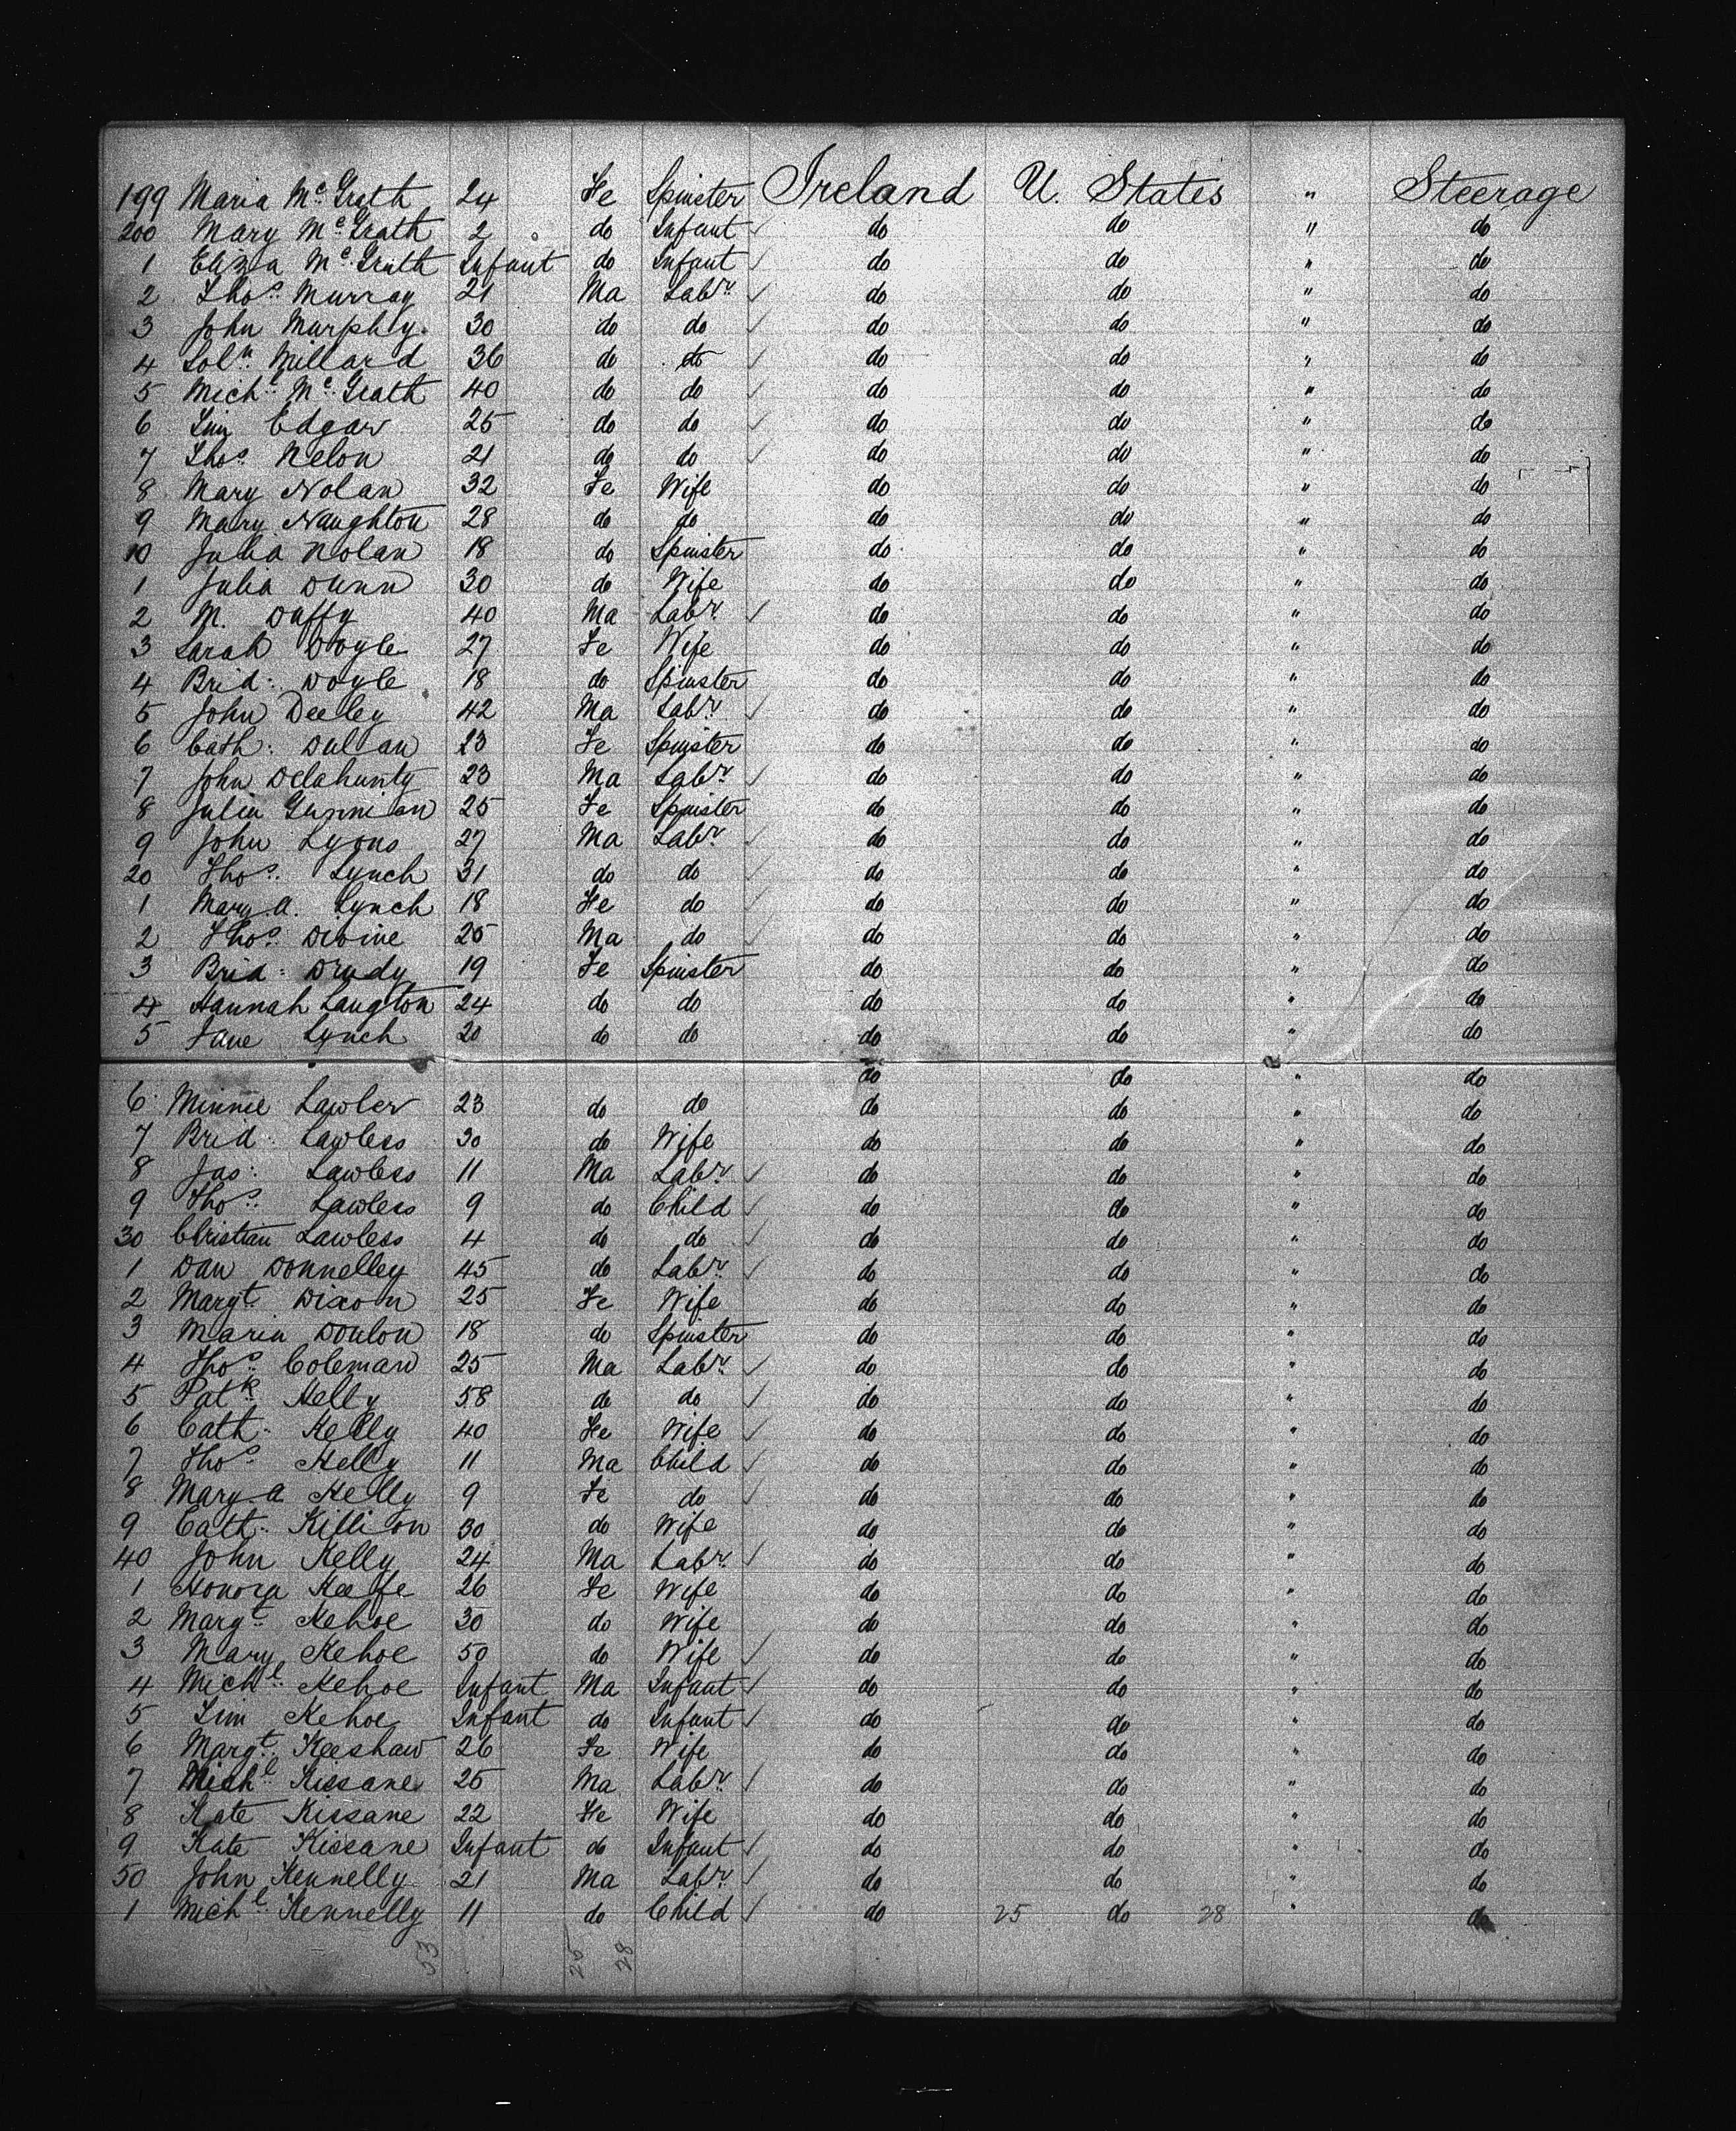 199 Maria Mc Grath 24 Fe Spinster Ireland U. States " Steerage
200 Mary Mc Grath 2 do Infant do do " do
1 Eliza Mc Grath Infant do Infant do do " do
2 Thos. Murray 21 Ma Labr. do do " do
3 John Murphy 30 do do do do " do
4 Soln. Millard 36 do do do do " do
5 Michl. Mc Grath 40 do do do do " do
6 Tim Edgar 25 do do do do " do
7 Thos. Nelon 21 do do do do " do
8 Mary Nolan 32 Fe Wife do do " do
9 Mary Naughton 28 do do do do " do
10 Julia Nolan 18 do Spinster do do " do
1 Julia Dunn 30 do Wife do do " do
2 M. Duffy 40 Ma Labr. do do " do
3 Sarah Doyle 27 Fe Wife do do " do
4 Brid: Doyle 18 do Spinster do do " do
5 John Deeley 42 Ma Labr. do do " do
6 Cath: Dulan 23 Fe Spinster do do " do
7 John Delahunty 23 Ma Labr. do do " do
8 Julia 25 Fe Spinster do do " do
9 John Lyons 27 Ma Labr. do do " do
20 Thos. Lynch 31 do do do do " do
1 Mary A. Lynch 18 Fe do do do " do
2 Thos. Divine 25 Ma do do do " do
3 Brid: Drudy 19 Fe Spinster do do " do
4 Hannah Langton 24 do do do do " do
5 Jane Lynch 20 do do do do " do
do do " do
6 Minnie Lawler 23 do do do do " do
7 Brid: Lawless 30 do Wife do do " do
8 Jas: Lawless 11 Ma Labr. do do " do
9 Thos. Lawless 9 do Child do do " do
30 Christian Lawless 4 do do do do " do
1 Dan Donnelley 45 do Labr. do do " do
2 Margt. Dixon 25 Fe Wife do do " do
3 Maria Donlon 18 do Spinster do do " do
4 Thos. Coleman 25 Ma Labr. do do " do
5 Patk. Kelly 58 do do do do " do
6 Cath: Kelly 40 Fe Wife do do " do
7 Thos. Kelly 11 Ma Child do do " do
8 Mary A Kelly 9 Fe do do do " do
9 Cath: Killion 30 do Wife do do " do
40 John Kelly 24 Ma Labr. do do " do
1 Honora Keefe 26 Fe Wife do do " do
2 Margt. Kehoe 30 do Wife do do " do
3 Mary Kehoe 50 do Wife do do " do
4 Michl. Kehoe Infant Ma Infant do do " do
5 Tim Kehoe Infant do Infant do do " do
6 Margt. Keeshaw 26 Fe Wife do do " do
7 Michl. Kissane 25 Ma Labr. do do " do
8 Kate Kissane 22 Fe Wife do do " do
9 Kate Kissane Infant do Infant do do " do
50 John Kennelly 21 Ma Labr. do do " do
1 Michl. Kennelly 11 do Child do 25 do 28 " do
53 25 28